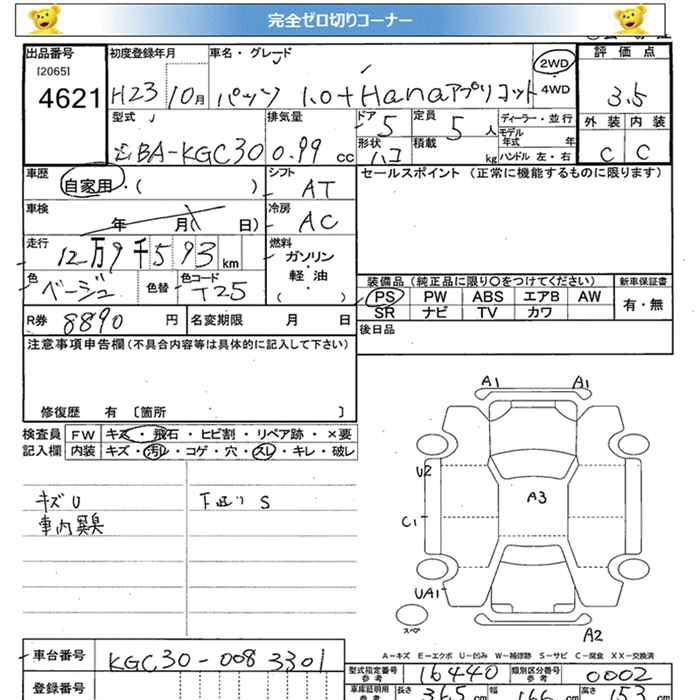 完全ゼロ切りコーナー
出品番号 初度登録年月 車名・グレード 2WD 評価点
[2065]
4621 H23 10月 パッソ 1.0+Hanaアプリコット ・4WD 3.5
型式 排気量 ドア 定員 ディーラー・並行 外装 内装
DBA-KGC30 0.99 cc 5 5人 モデル年式 年
形状 積載 kg ハンドル 左・右 C C
ハコ
車歴 シフト セールスポイント(正常に機能するものに限ります)
自家用・( ) AT
車検 冷房
年 月 日) AC
走行 燃料
12万9千593km ガソリン
色 色替 色コード 軽・油 装備品(純正品に限り〇をつけてください) 新車保証書
ベージュ T25 ( ) PS PW ABS エアB AW 有・無
R券 8890円 名変期限 月 日 SR ナビ TV カワ
注意事項申告欄(不具合内容等は具体的に記入して下さい) 後日品
修復歴 有 [箇所 ]
検査員 FW キズ・飛石・ヒビ割・リペア跡・×要
記入欄 内装 キズ・汚れ・コゲ・穴・スレ・キレ・破レ
キズU 下廻りS
車内異臭
A1 A1
U2 A3
C1
UA1
スペア A2
A-キズ E-エクボ U-凹み W-補修跡 S-サビ C-腐食 XX-交換済
車台番号 KGC30-0083301
型式指定番号 参考 16440 類別区分番号 参考 0002
登録番号 車庫証明用 参考 長さ 365cm 幅 166cm 高さ 153cm